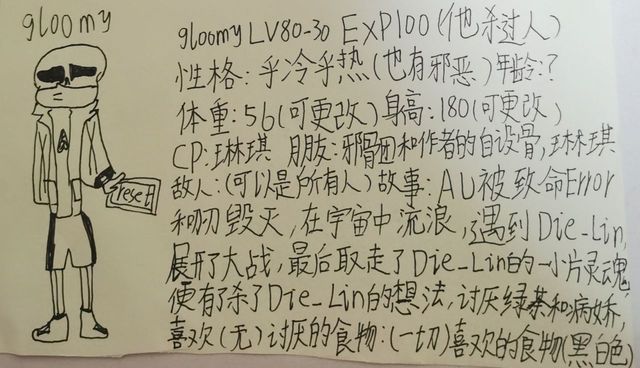 gloomy
gloomy LV80-30 EXP100(他杀过人)
性格:乎冷乎热(也有邪恶)年龄:?
体重:56(可更改)身高:180(可更改)
CP:琳琪 朋友:邪骨团和作者的自设骨,琳琪
敌人:(可以是所有人)故事:AU被致命Error
和刃毁灭,在宇宙中流浪,遇到Die_Lin,
展开了大战,最后取走了Die_Lin的一小片灵魂,
便有了杀了Die_Lin的想法,讨厌绿基和病娇,
喜欢(无)讨厌的食物:(一切)喜欢的食物(黑白色)
reset